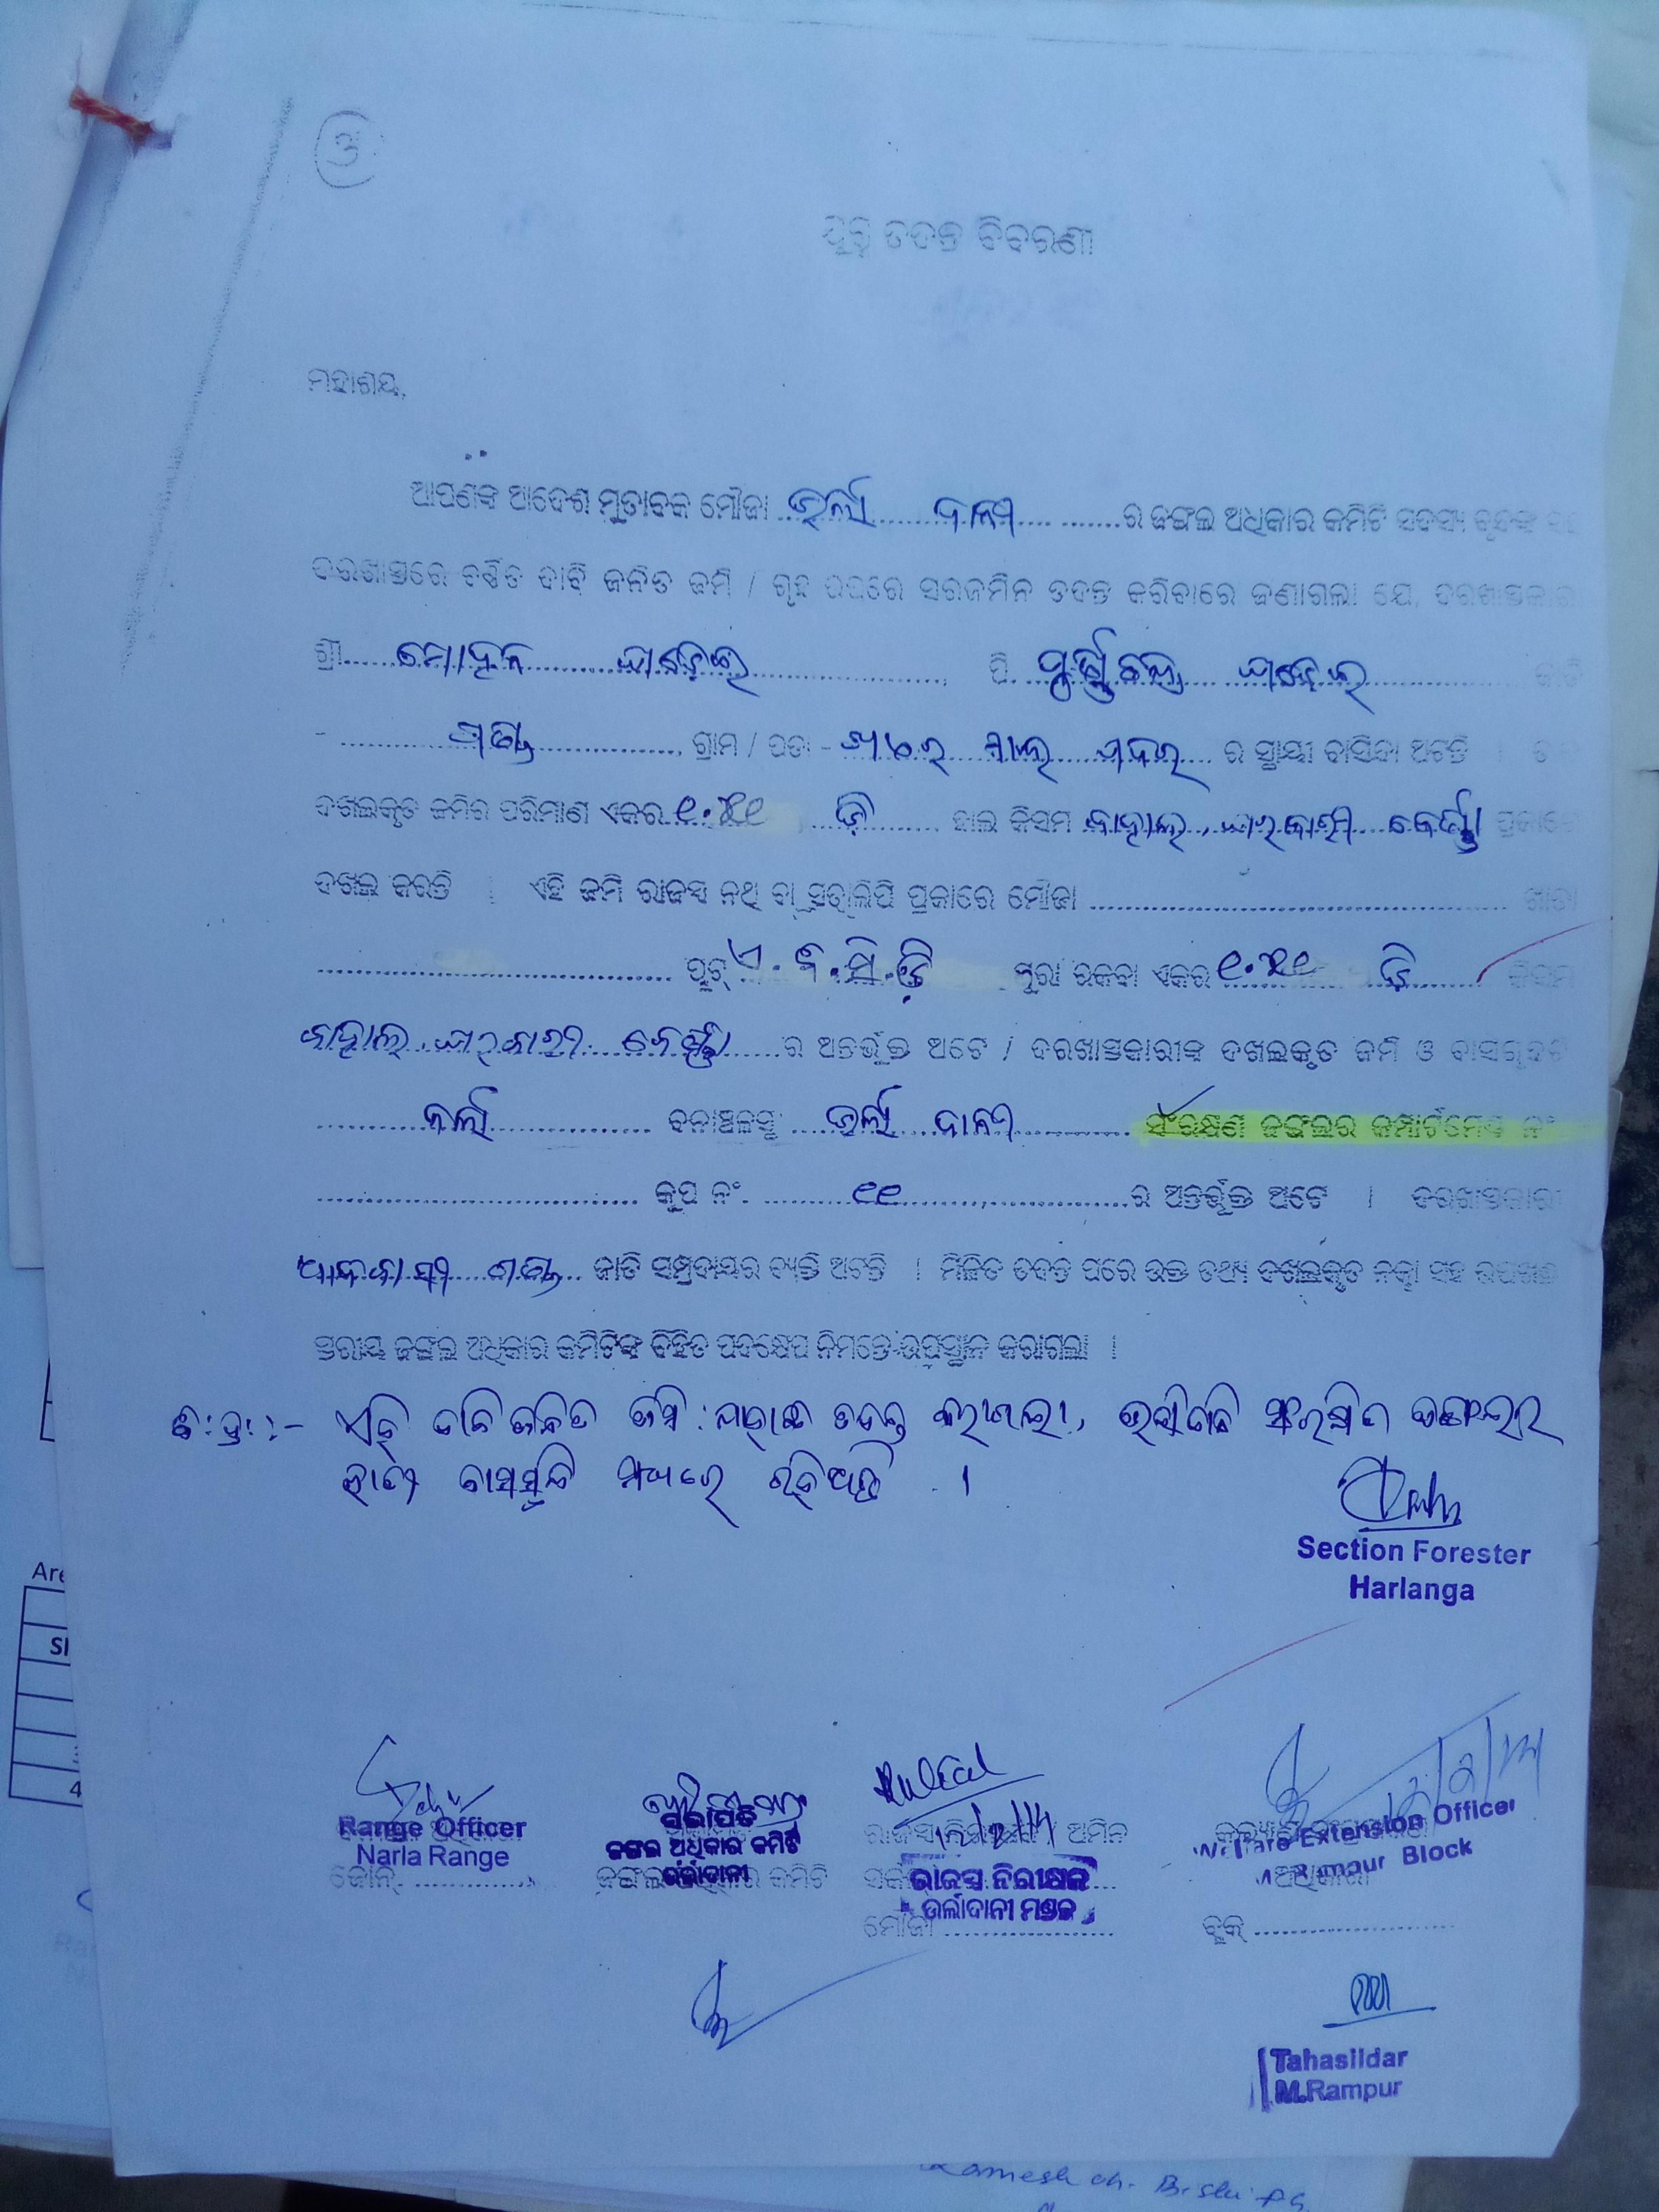 ୩
ଯୁଗ୍ମ ତଦନ୍ତ ବିବରଣୀ
ମହାଶୟ,
ଆପଣଙ୍କ ଆଦେଶ ମୁତାବକ ମୌଜା ଉର୍ଲା ଦାନୀ ର ଜଙ୍ଗଲ ଅଧିକାର କମିଟି ସଦସ୍ୟ ବୃନ୍ଦଙ୍କ
ଦରଖାସ୍ତରେ ବର୍ଣ୍ଣିତ ଦାବି ଜନିତ ଜମି / ଗୃହ ଉପରେ ସରଜମିନ ତଦନ୍ତ କରିବାରେ ଜଣାଗଲା ଯେ, ଦରଖାସ୍ତକାରୀ
ଶ୍ରୀ ମୋହନ ପି. ପୂର୍ଣ୍ଣଚନ୍ଦ୍ର ଜାତି
- ଗଣ୍ଡ, ଗ୍ରାମ / ପଡା - ର ସ୍ଥାୟୀ ବାସିନ୍ଦା ଅଟନ୍ତି ।
ଦଖଲକୃତ ଜମିର ପରିମାଣ ଏକର ୧.୪୧ ଡ଼ି ହାଲ କିସମ ବାହାଲ, ବେର୍ଣ୍ଣା ପ୍ରକାରେ
ଦଖଲ କରନ୍ତି । ଏହି ଜମି ରାଜସ୍ୱ ନଥି ବା ସତ୍ୱଲିପି ପ୍ରକାରେ ମୌଜା ଖାତା
ପ୍ଲଟ୍ ଏ.ବି.ସି.ଡ଼ି ପୁରା ରକବା ଏକର ୧.୪୧ ଡ଼ି କିସମ
ବାହାଲ, ବେର୍ଣ୍ଣା ର ଅନ୍ତର୍ଭୁକ୍ତ ଅଟେ / ଦରଖାସ୍ତକାରୀଙ୍କ ଦଖଲକୃତ ଜମି ଓ ବାସଗୃହଟି
ନର୍ଲା ବନାଞ୍ଚଳସ୍ଥ ଉର୍ଲା ଦାନୀ ସଂରକ୍ଷଣ ଜଙ୍ଗଲର କମ୍ପାର୍ଟମେଣ୍ଟ ନଂ
କୂପ ନଂ. ୧୧ ର ଅନ୍ତର୍ଭୁକ୍ତ ଅଟେ । ଦରଖାସ୍ତକାରୀ
ଆଦିବାସୀ ଗଣ୍ଡ ଜାତି ସମ୍ପ୍ରଦାୟର ବ୍ୟକ୍ତି ଅଟନ୍ତି । ମିଳିତ ତଦନ୍ତ ପରେ ଉକ୍ତ ତଥ୍ୟ ଦଖଲକୃତ ନକ୍ସା ସହ ଉପଖଣ୍ଡ
ସ୍ତରୀୟ ଜଙ୍ଗଲ ଅଧିକାର କମିଟିଙ୍କ ବିହିତ ପଦକ୍ଷେପ ନିମନ୍ତେ ଉପସ୍ଥାନ କରାଗଲା ।
ବି:ଦ୍ର: :- ଏହି ଦାବି ଜନିତ ଜମି: ଯାହାଙ୍କ ତଦନ୍ତ କରାଗଲା, ସଂରକ୍ଷିତ ଜଙ୍ଗଲର
ମଧ୍ୟରେ ରହିଅଛି ।
Section Forester
Harlanga
Range Officer
Narla Range
ଜୋନ୍
ସଭାପତି
ଜଙ୍ଗଲ ଅଧିକାର କମିଟି
ଉର୍ଲାଦାନୀ
ରାଜସ୍ୱ ନିରୀକ୍ଷକ / ଅମିନ
ରାଜସ୍ୱ ନିରୀକ୍ଷକ
ଉର୍ଲାଦାନୀ ମଣ୍ଡଳ
ମୌଜା
Welfare Extension Officer
M.Rampur Block
ଅଧିକାରୀ
ବ୍ଲକ୍
Tahasildar
M.Rampur
Are
Sl
4
Ramesh ch.